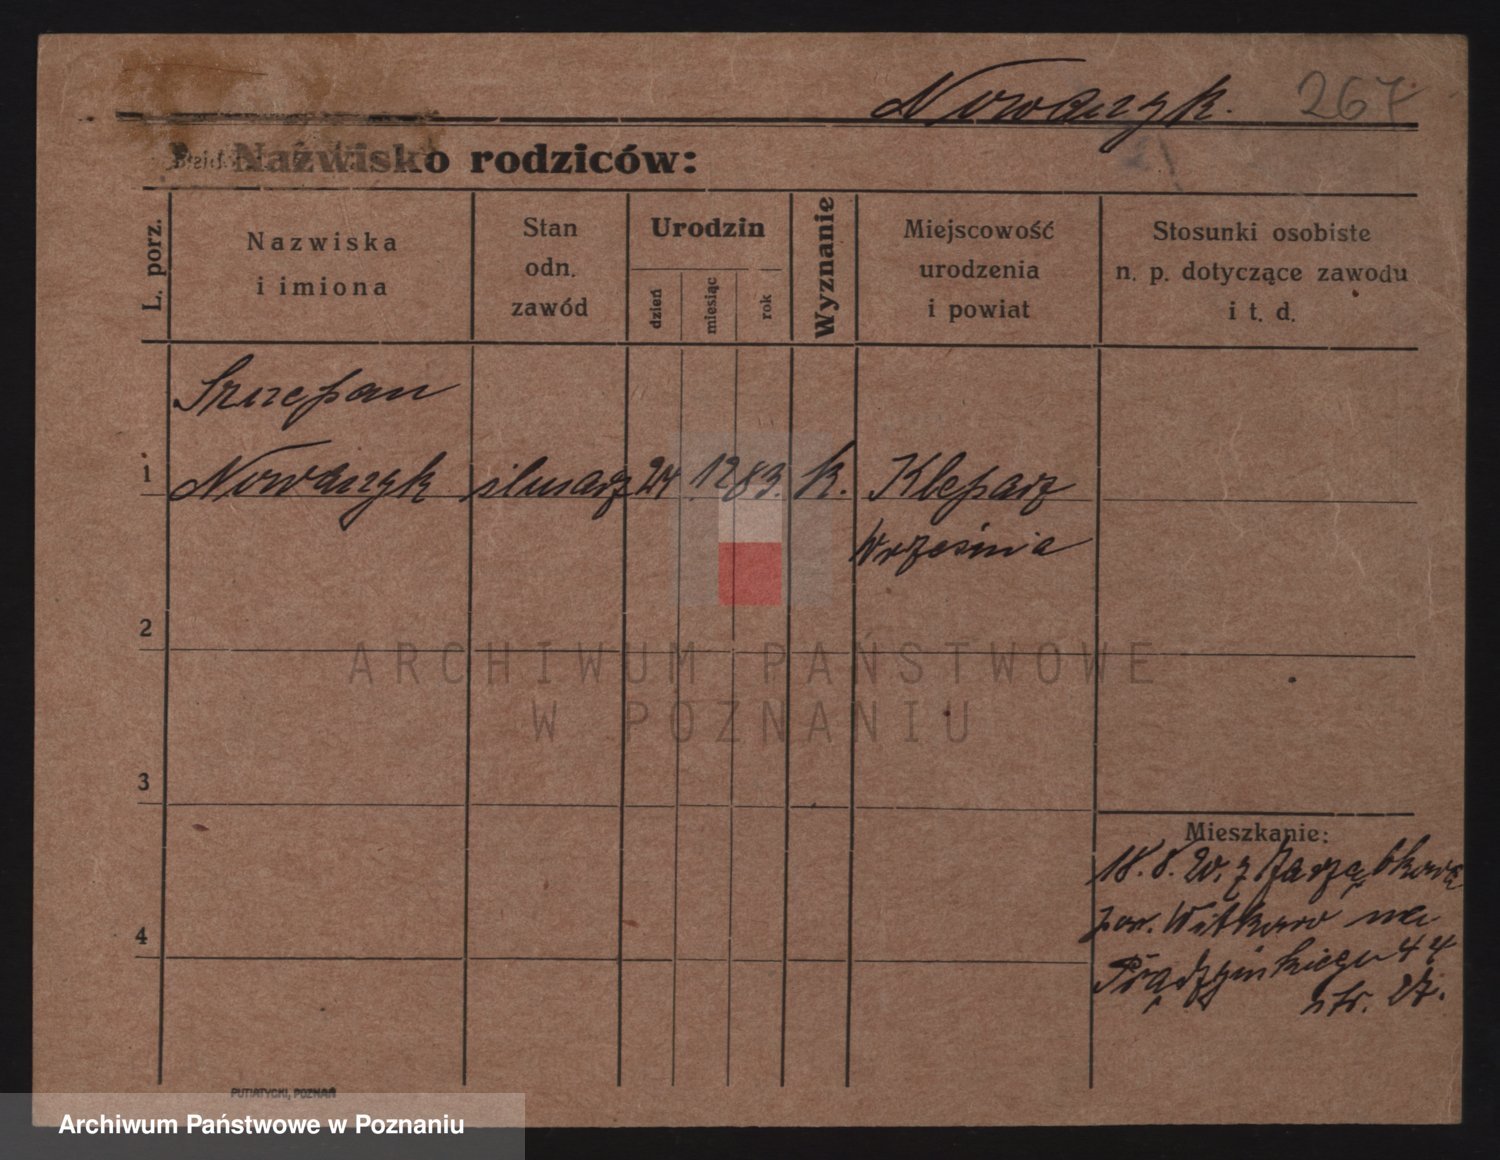 Nowaczyk. 267
Nazwisko rodziców:
L. porz.
Nazwiska
i imiona
Stan
odn.
zawód
Urodzin
dzień
miesiąc
rok
Wyznanie
Miejscowość
urodzenia
i powiat
Stosunki osobiste
n. p. dotyczące zawodu
i t. d.
Szczepan
1 Nowaczyk ślusarz 24 12 83. k. Kleparz
Września
2
3
4
Mieszkanie:
18.8.20. z Jarząbkowa
pow. Witkowo na
Prądzyńskiego 44
str. 27.
ARCHIWUM PAŃSTWOWE
W POZNANIU
PUTIATYCKI, POZNAŃ
Archiwum Państwowe w Poznaniu